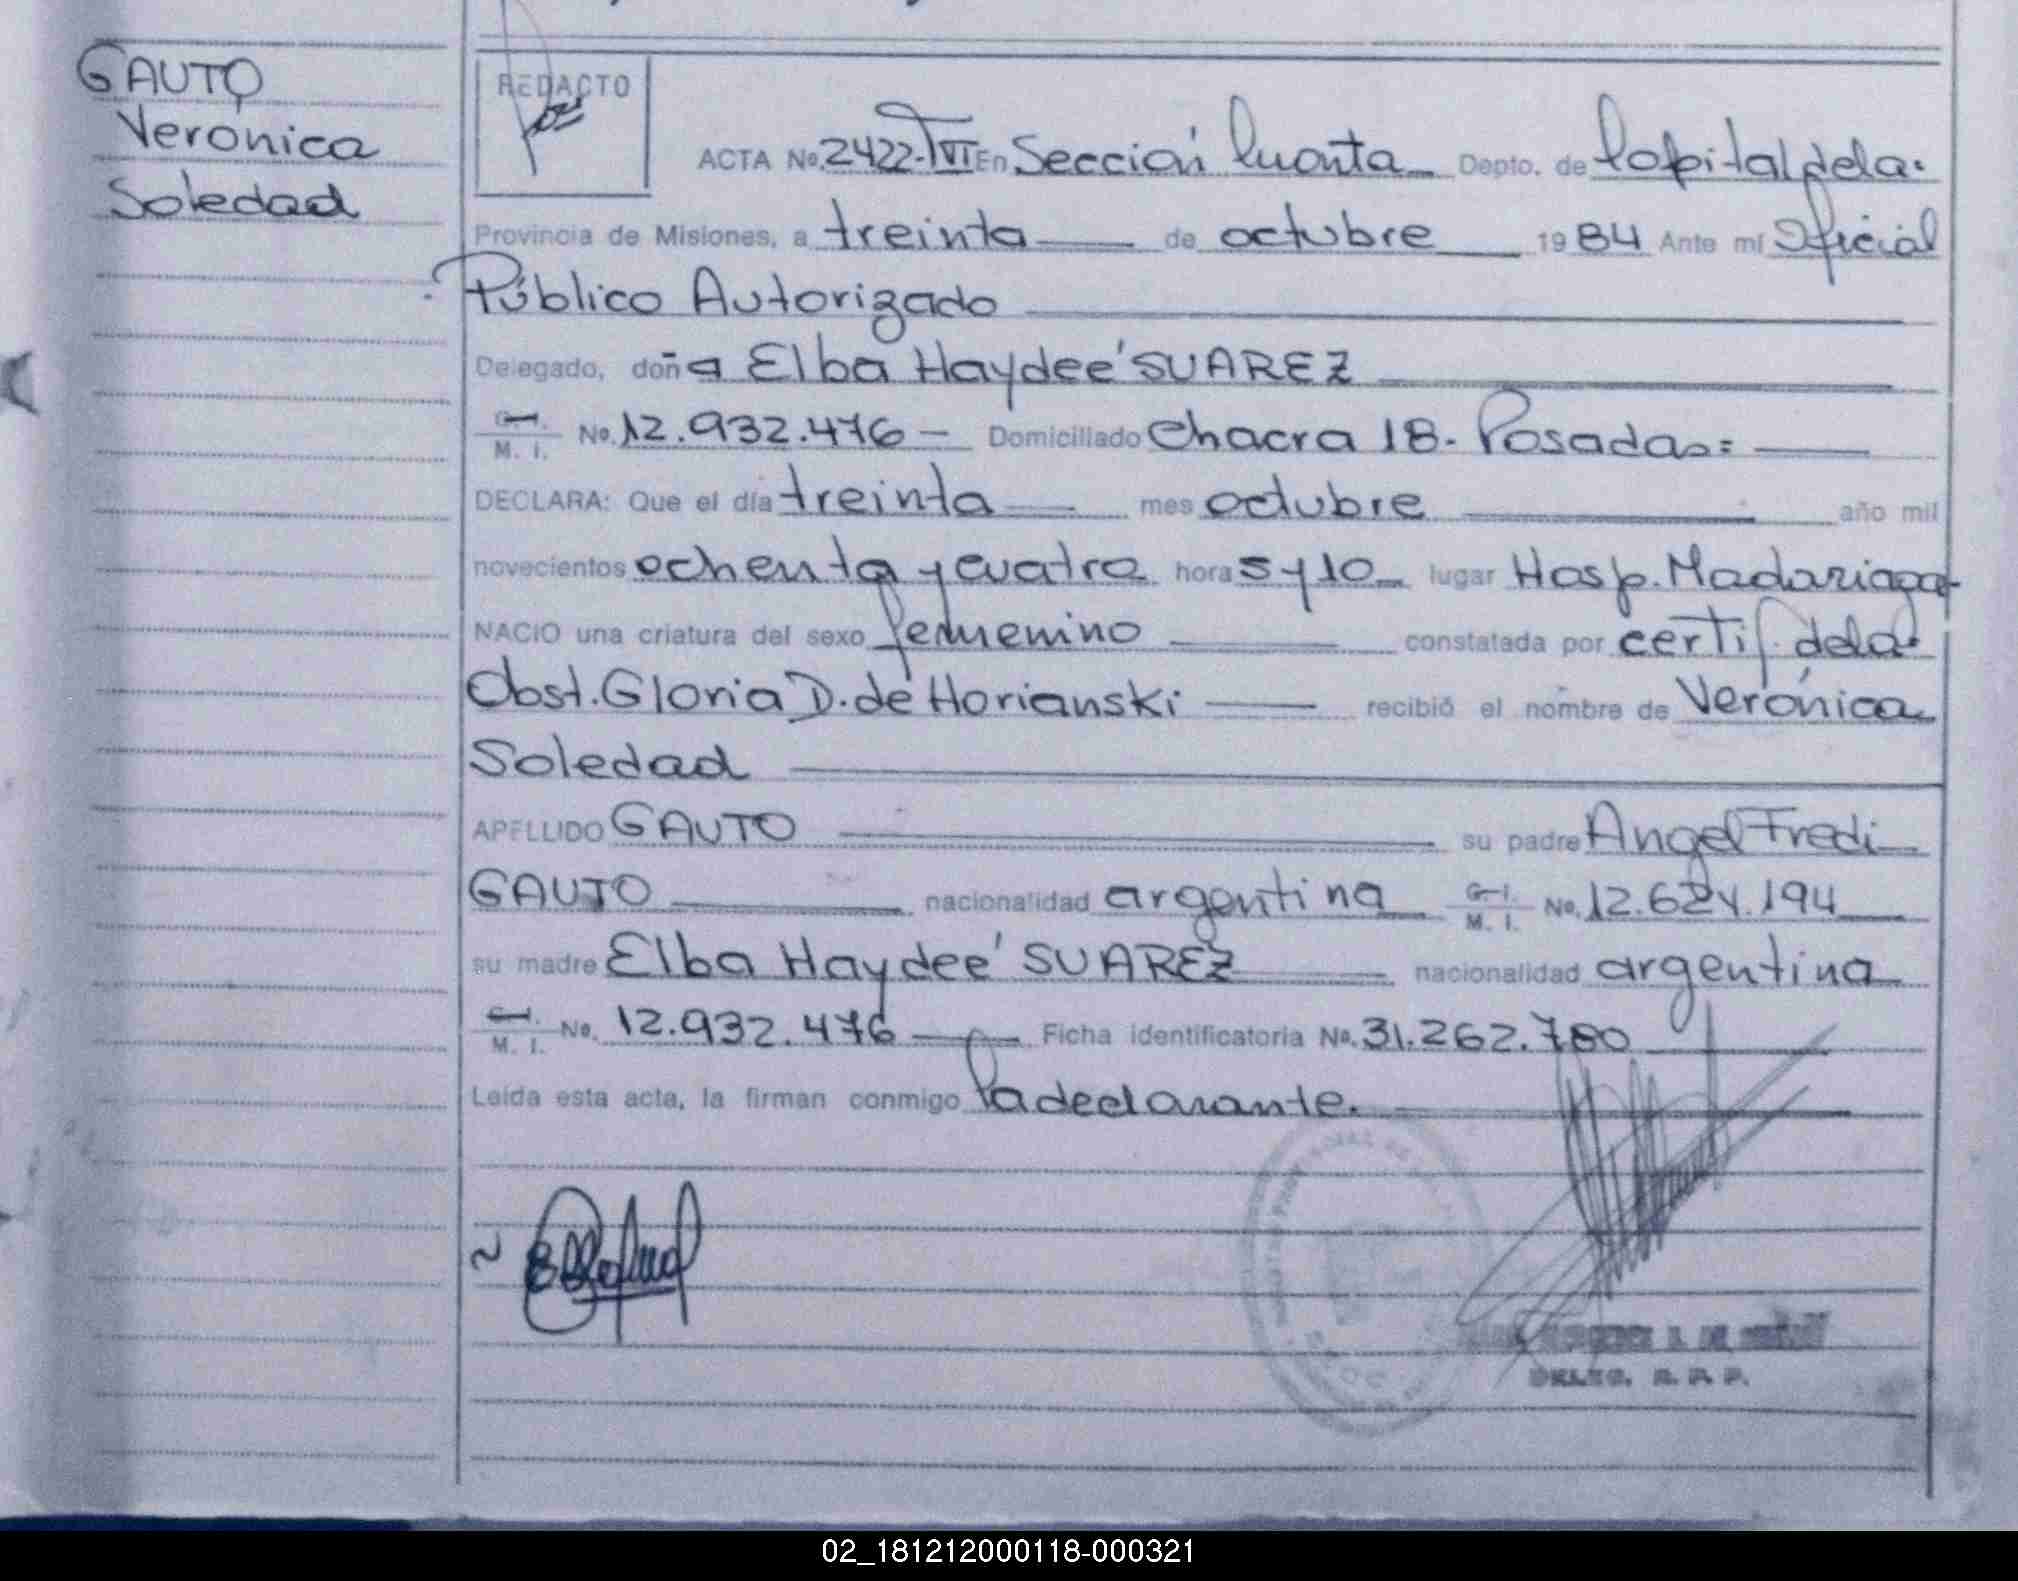 GAUTO
Verónica
Soledad
REDACTO
ACTA No. 2422-TVI En Sección Cuarta Depto. de Capital de la
Provincia de Misiones, a treinta de octubre 1984 Ante mí Oficial
Público Autorizado
Delegado, doña Elba Haydeé SUAREZ
C. I. M. I. No. 12.932.476 - Domiciliado Chacra 18. Posadas =
DECLARA: Que el día treinta mes octubre año mil
novecientos ochenta y cuatro hora 5 y 10 lugar Hosp. Madariaga
NACIO una criatura del sexo femenino constatada por certif. de la
Obst. Gloria D. de Horianski recibió el nombre de Verónica
Soledad
APELLIDO GAUTO su padre Angel Fredi
GAUTO nacionalidad argentina C. I. M. I. No. 12.624.194
su madre Elba Haydeé SUAREZ nacionalidad argentina
C. I. M. I. No. 12.932.476 Ficha identificatoria No. 31.262.780
Leída esta acta, la firman conmigo la declarante.
DELEG. R. P. P.
02_181212000118-000321